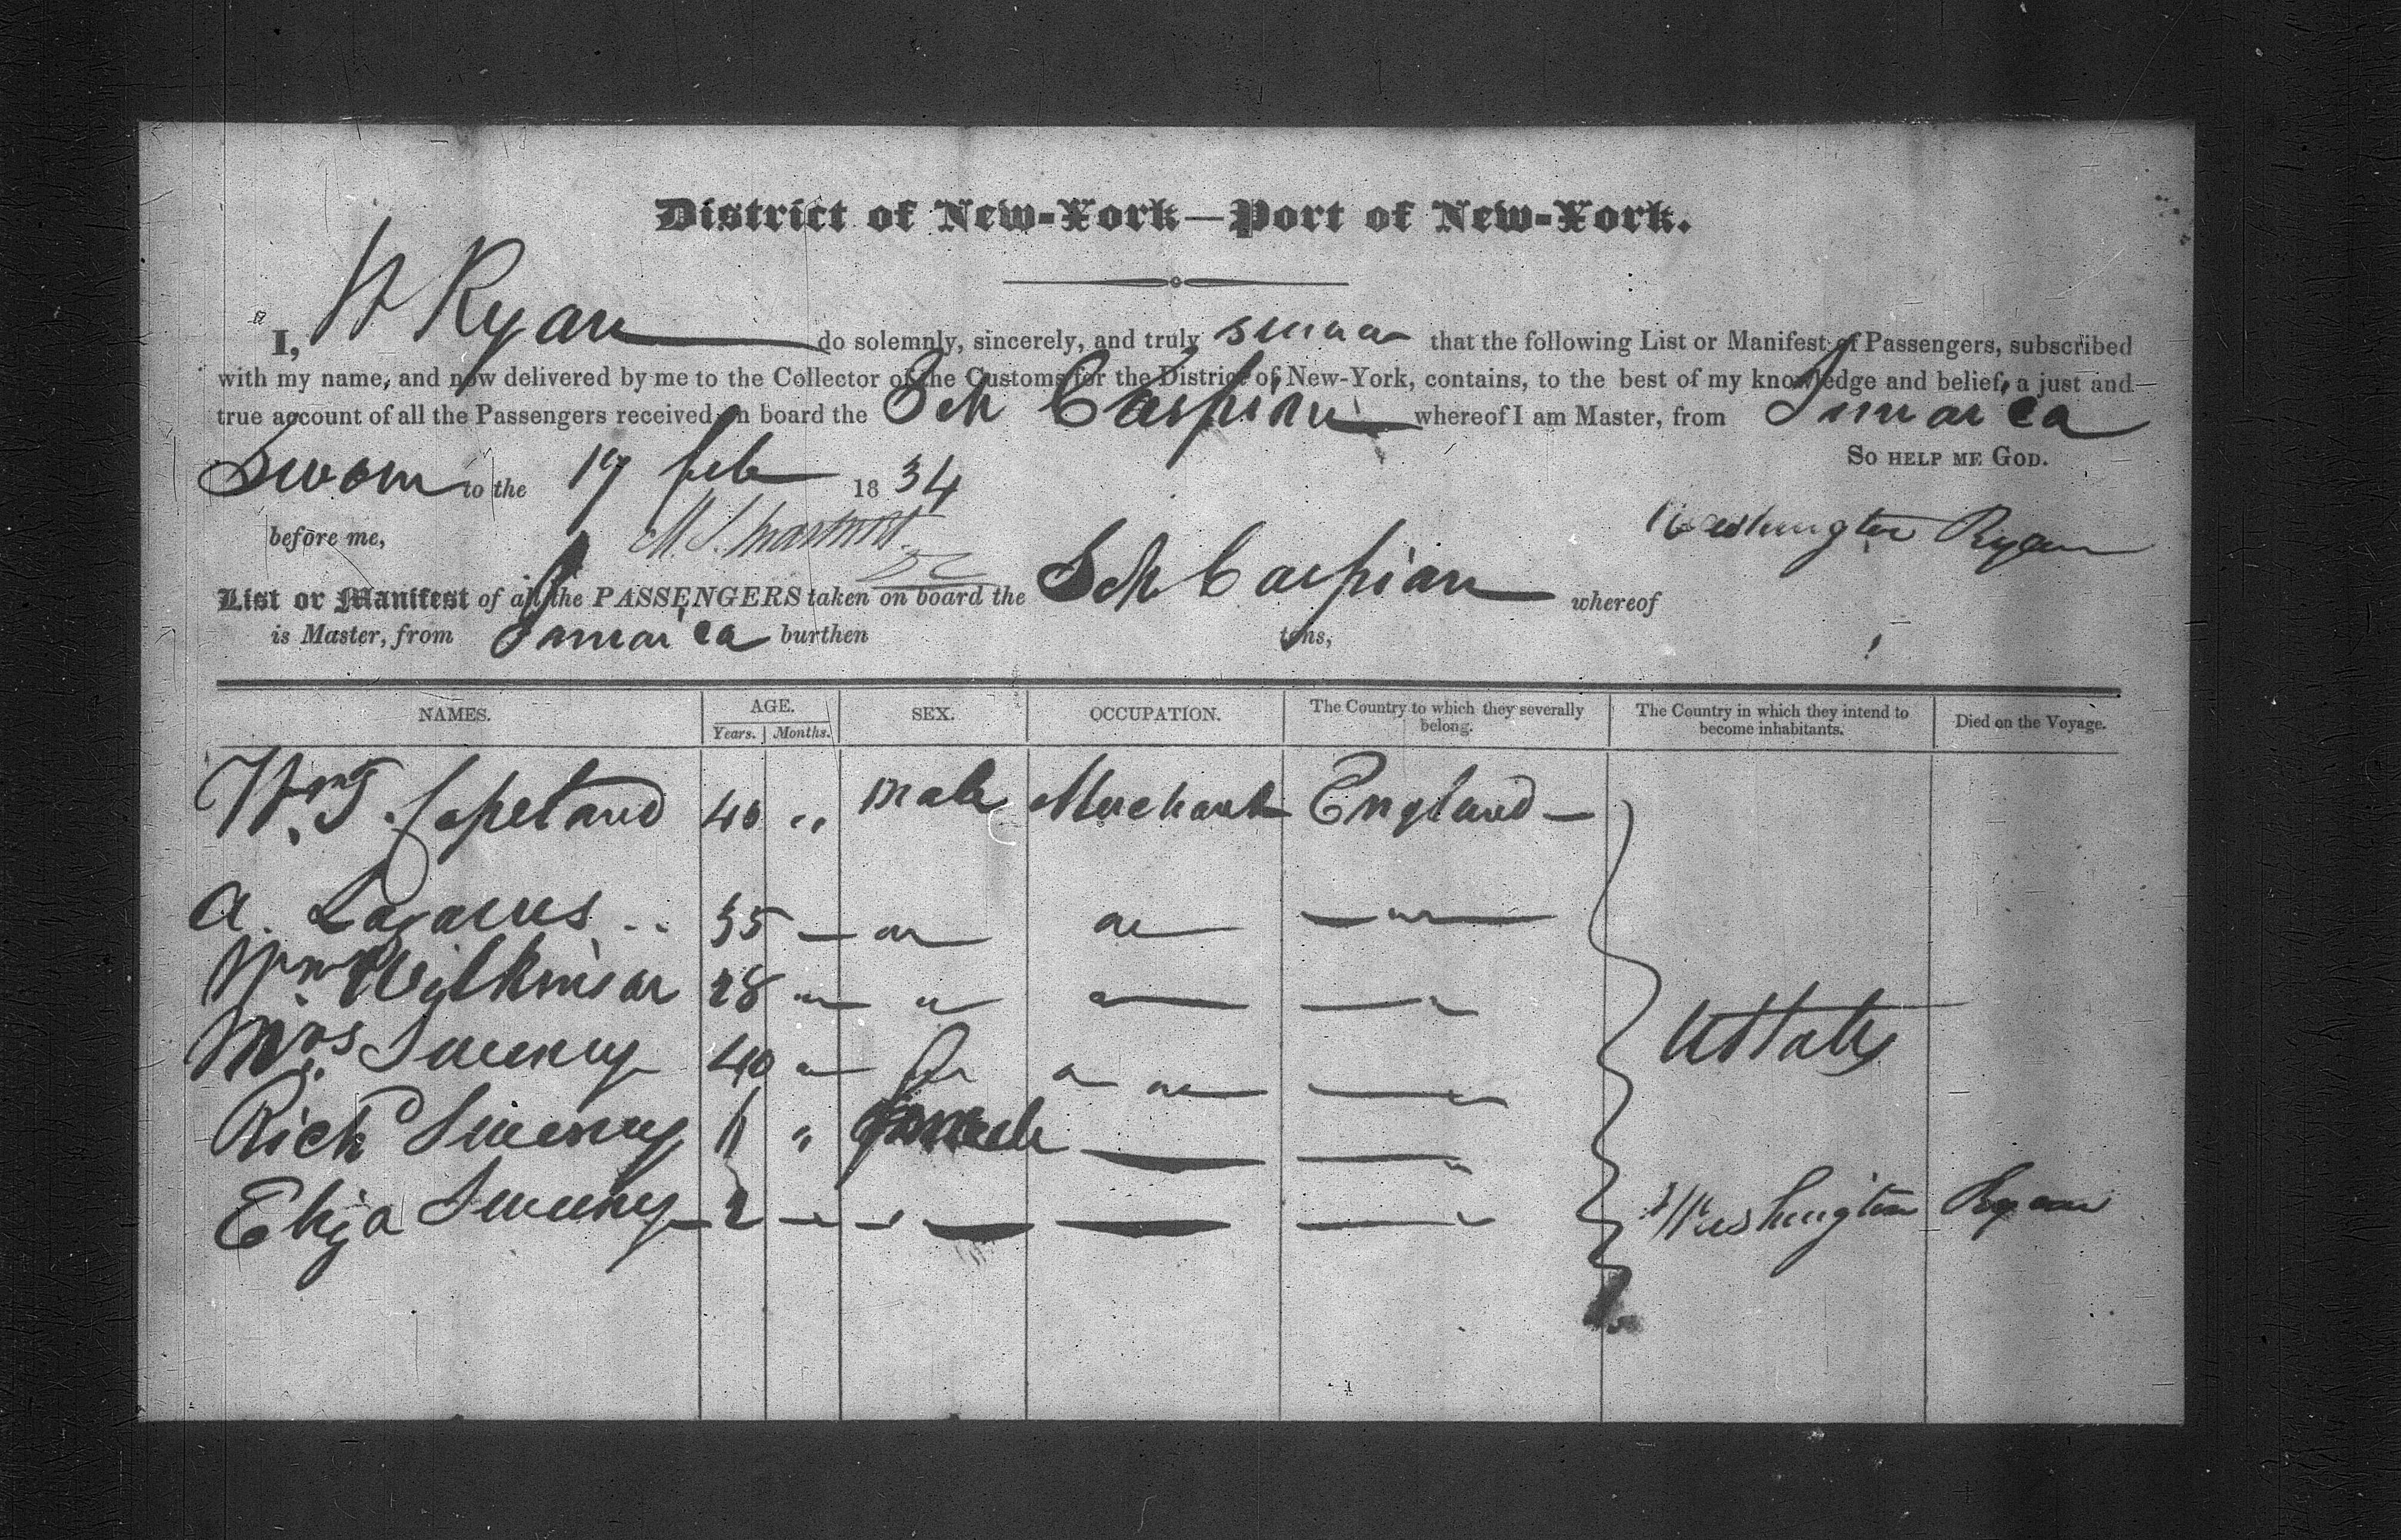 District of New-York—Port of New-York.
I, W Ryan do solemnly, sincerely, and truly swear that the following List or Manifest of Passengers, subscribed
with my name, and now delivered by me to the Collector of the Customs for the District of New-York, contains, to the best of my knowledge and belief, a just and
true account of all the Passengers received on board the Sch Caspian whereof I am Master, from Jamaica
So help me God.
Sworn to the 19 feb 1834
before me,
Washington Ryan
List or Manifest of all the PASSENGERS taken on board the Sch Caspian whereof
is Master, from Jamaica burthen tons,
NAMES. AGE. SEX. OCCUPATION. The Country to which they severally belong. The Country in which they intend to become inhabitants. Died on the Voyage.
Years. Months.
Wm T. Copeland 40 " male Merchant England —
A. Lazarus 35 — " " — " —
Wm Wilkinson 28 " " " — "
U States
Mrs Sweeny 40 " " — "
Rich Sweeny 11 " — "
Eliza Sweeny 2 — " — "
Washington Ryan